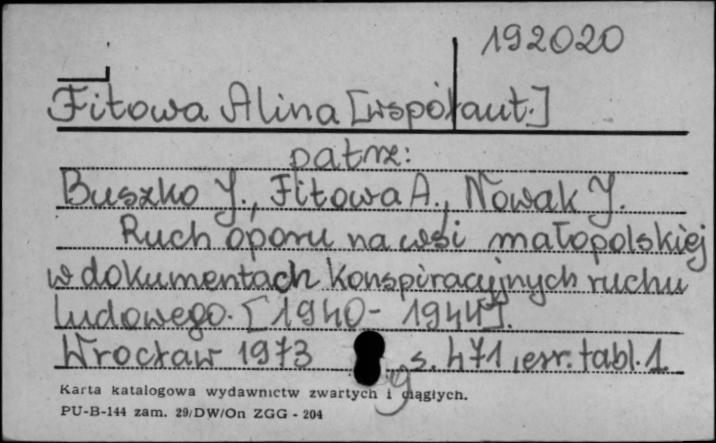 192020
Fitowa Alina [współaut.]
patrz:
Buszko J., Fitowa A., Nowak J.
Ruch oporu na wsi małopolskiej
w dokumentach konspiracyjnych ruchu
ludowego. [1940-1944].
Wrocław 1973 s. 471, err. tabl. 1
Karta katalogowa wydawnictw zwartych i ciągłych.
PU-B-144 zam. 29/DW/On ZGG - 204